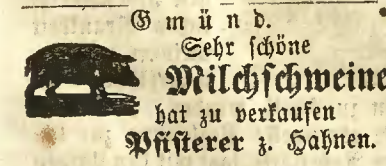 Gmünd.
Sehr schöne
Milchschweine
hat zu verkaufen
Pfisterer z. Hahnen.